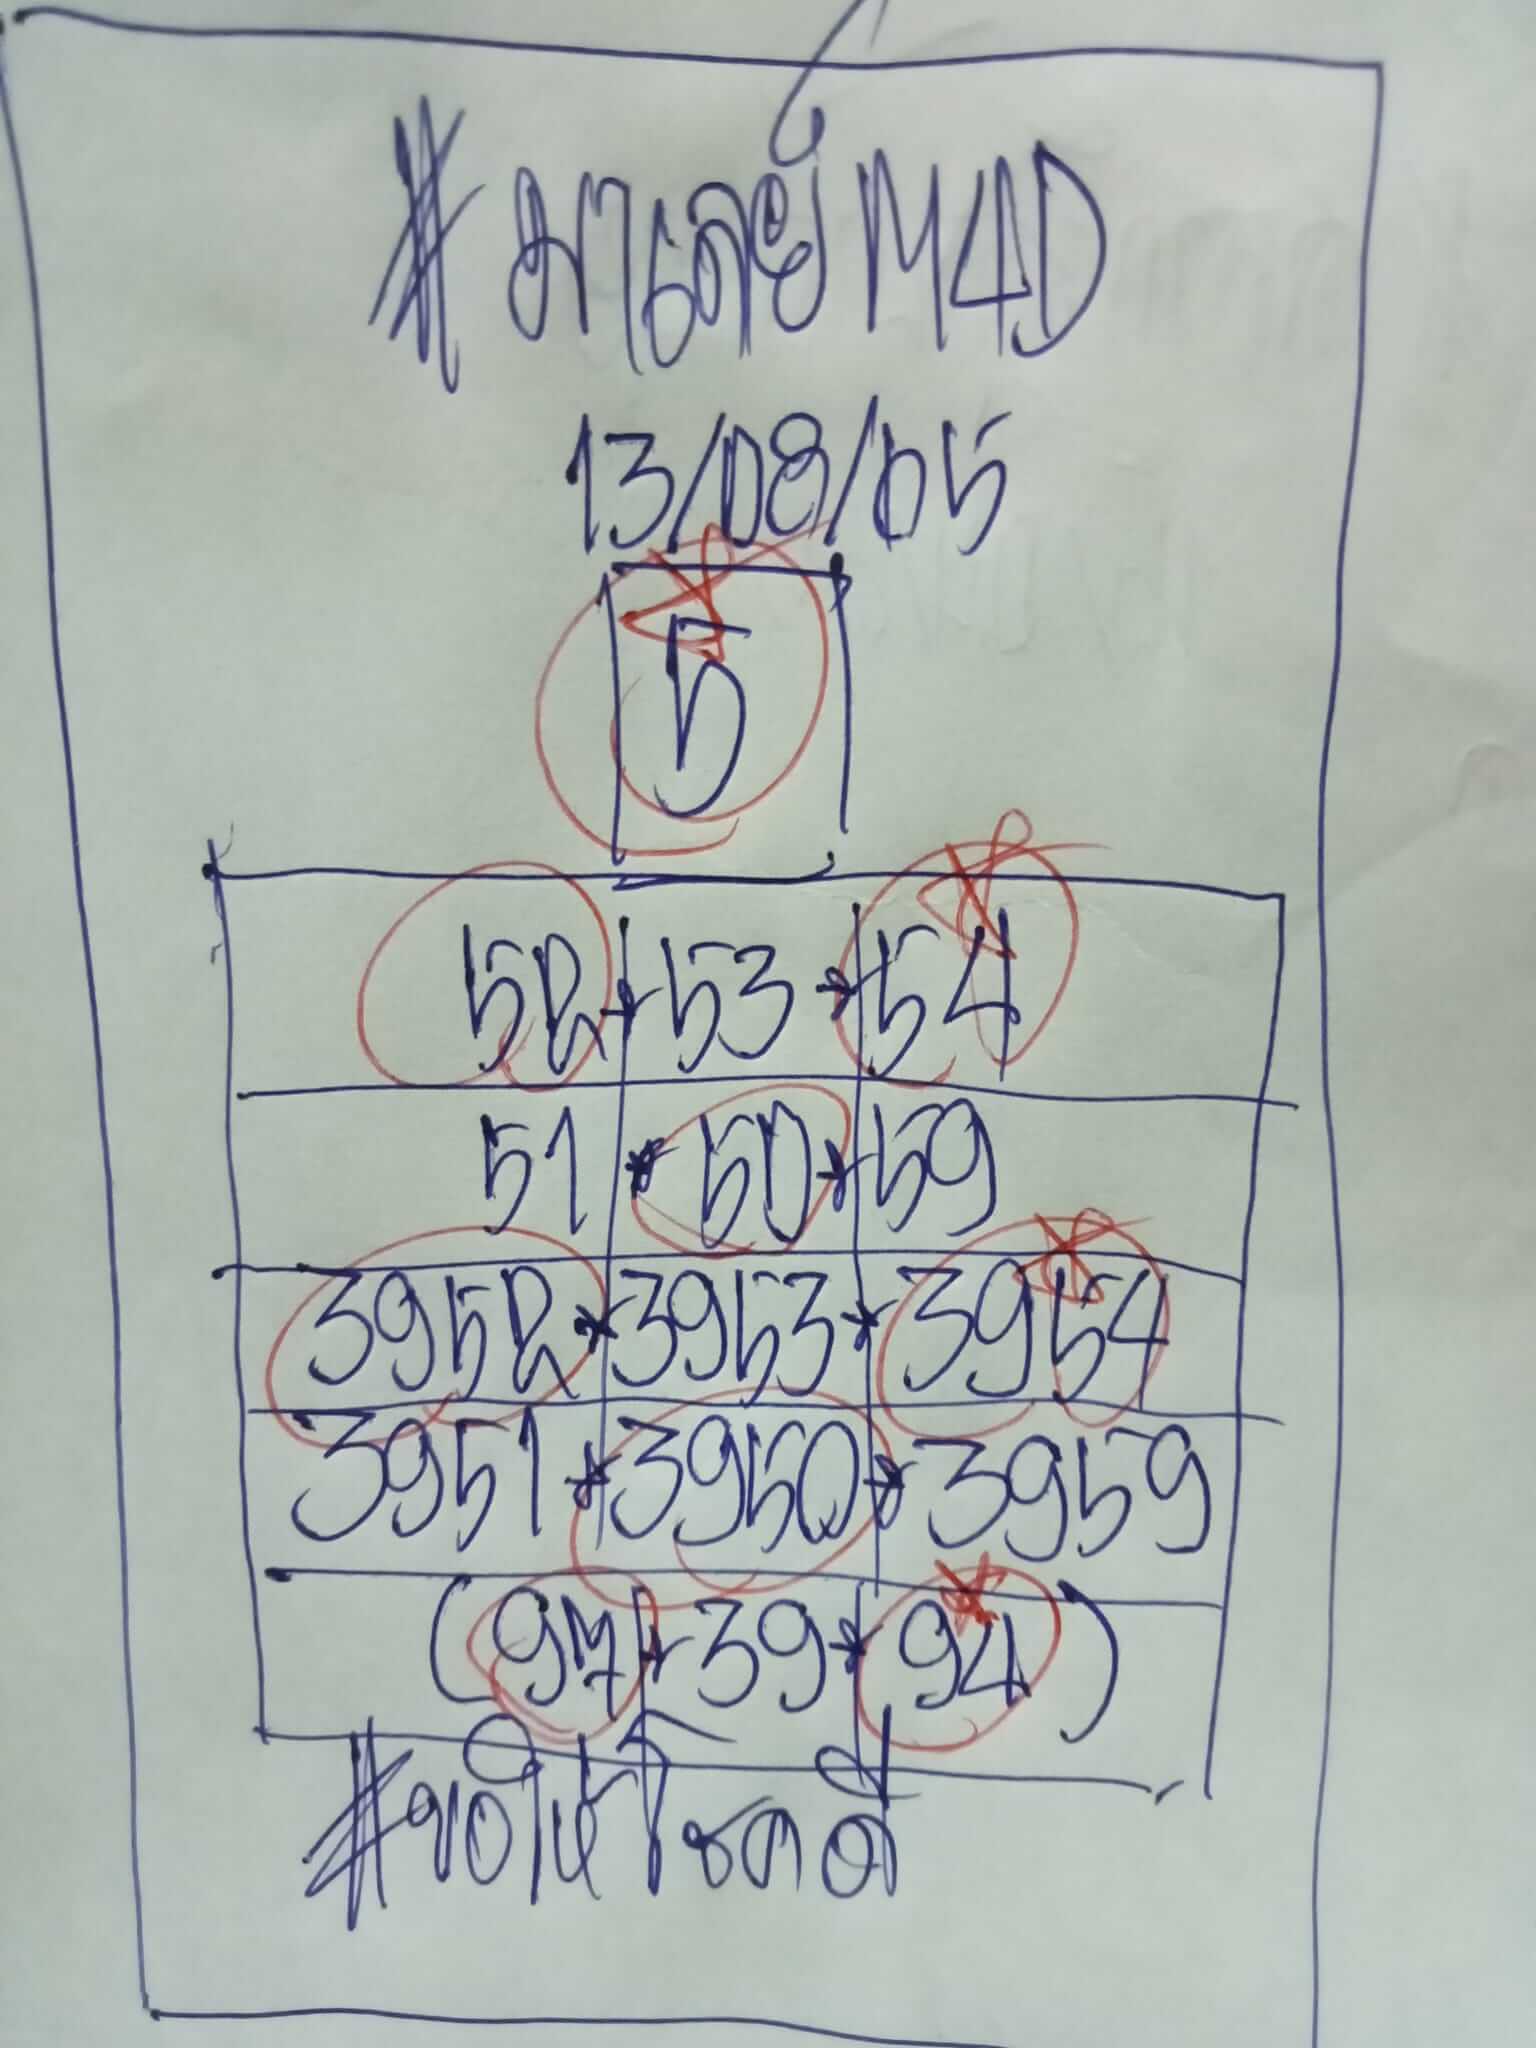 #มาเลย์ M4D
13/08/65
5
52*53*54
51*50*59
3952*3953*3954
3951*3950*3959
(97*39*94)
#ขอให้โชคดี